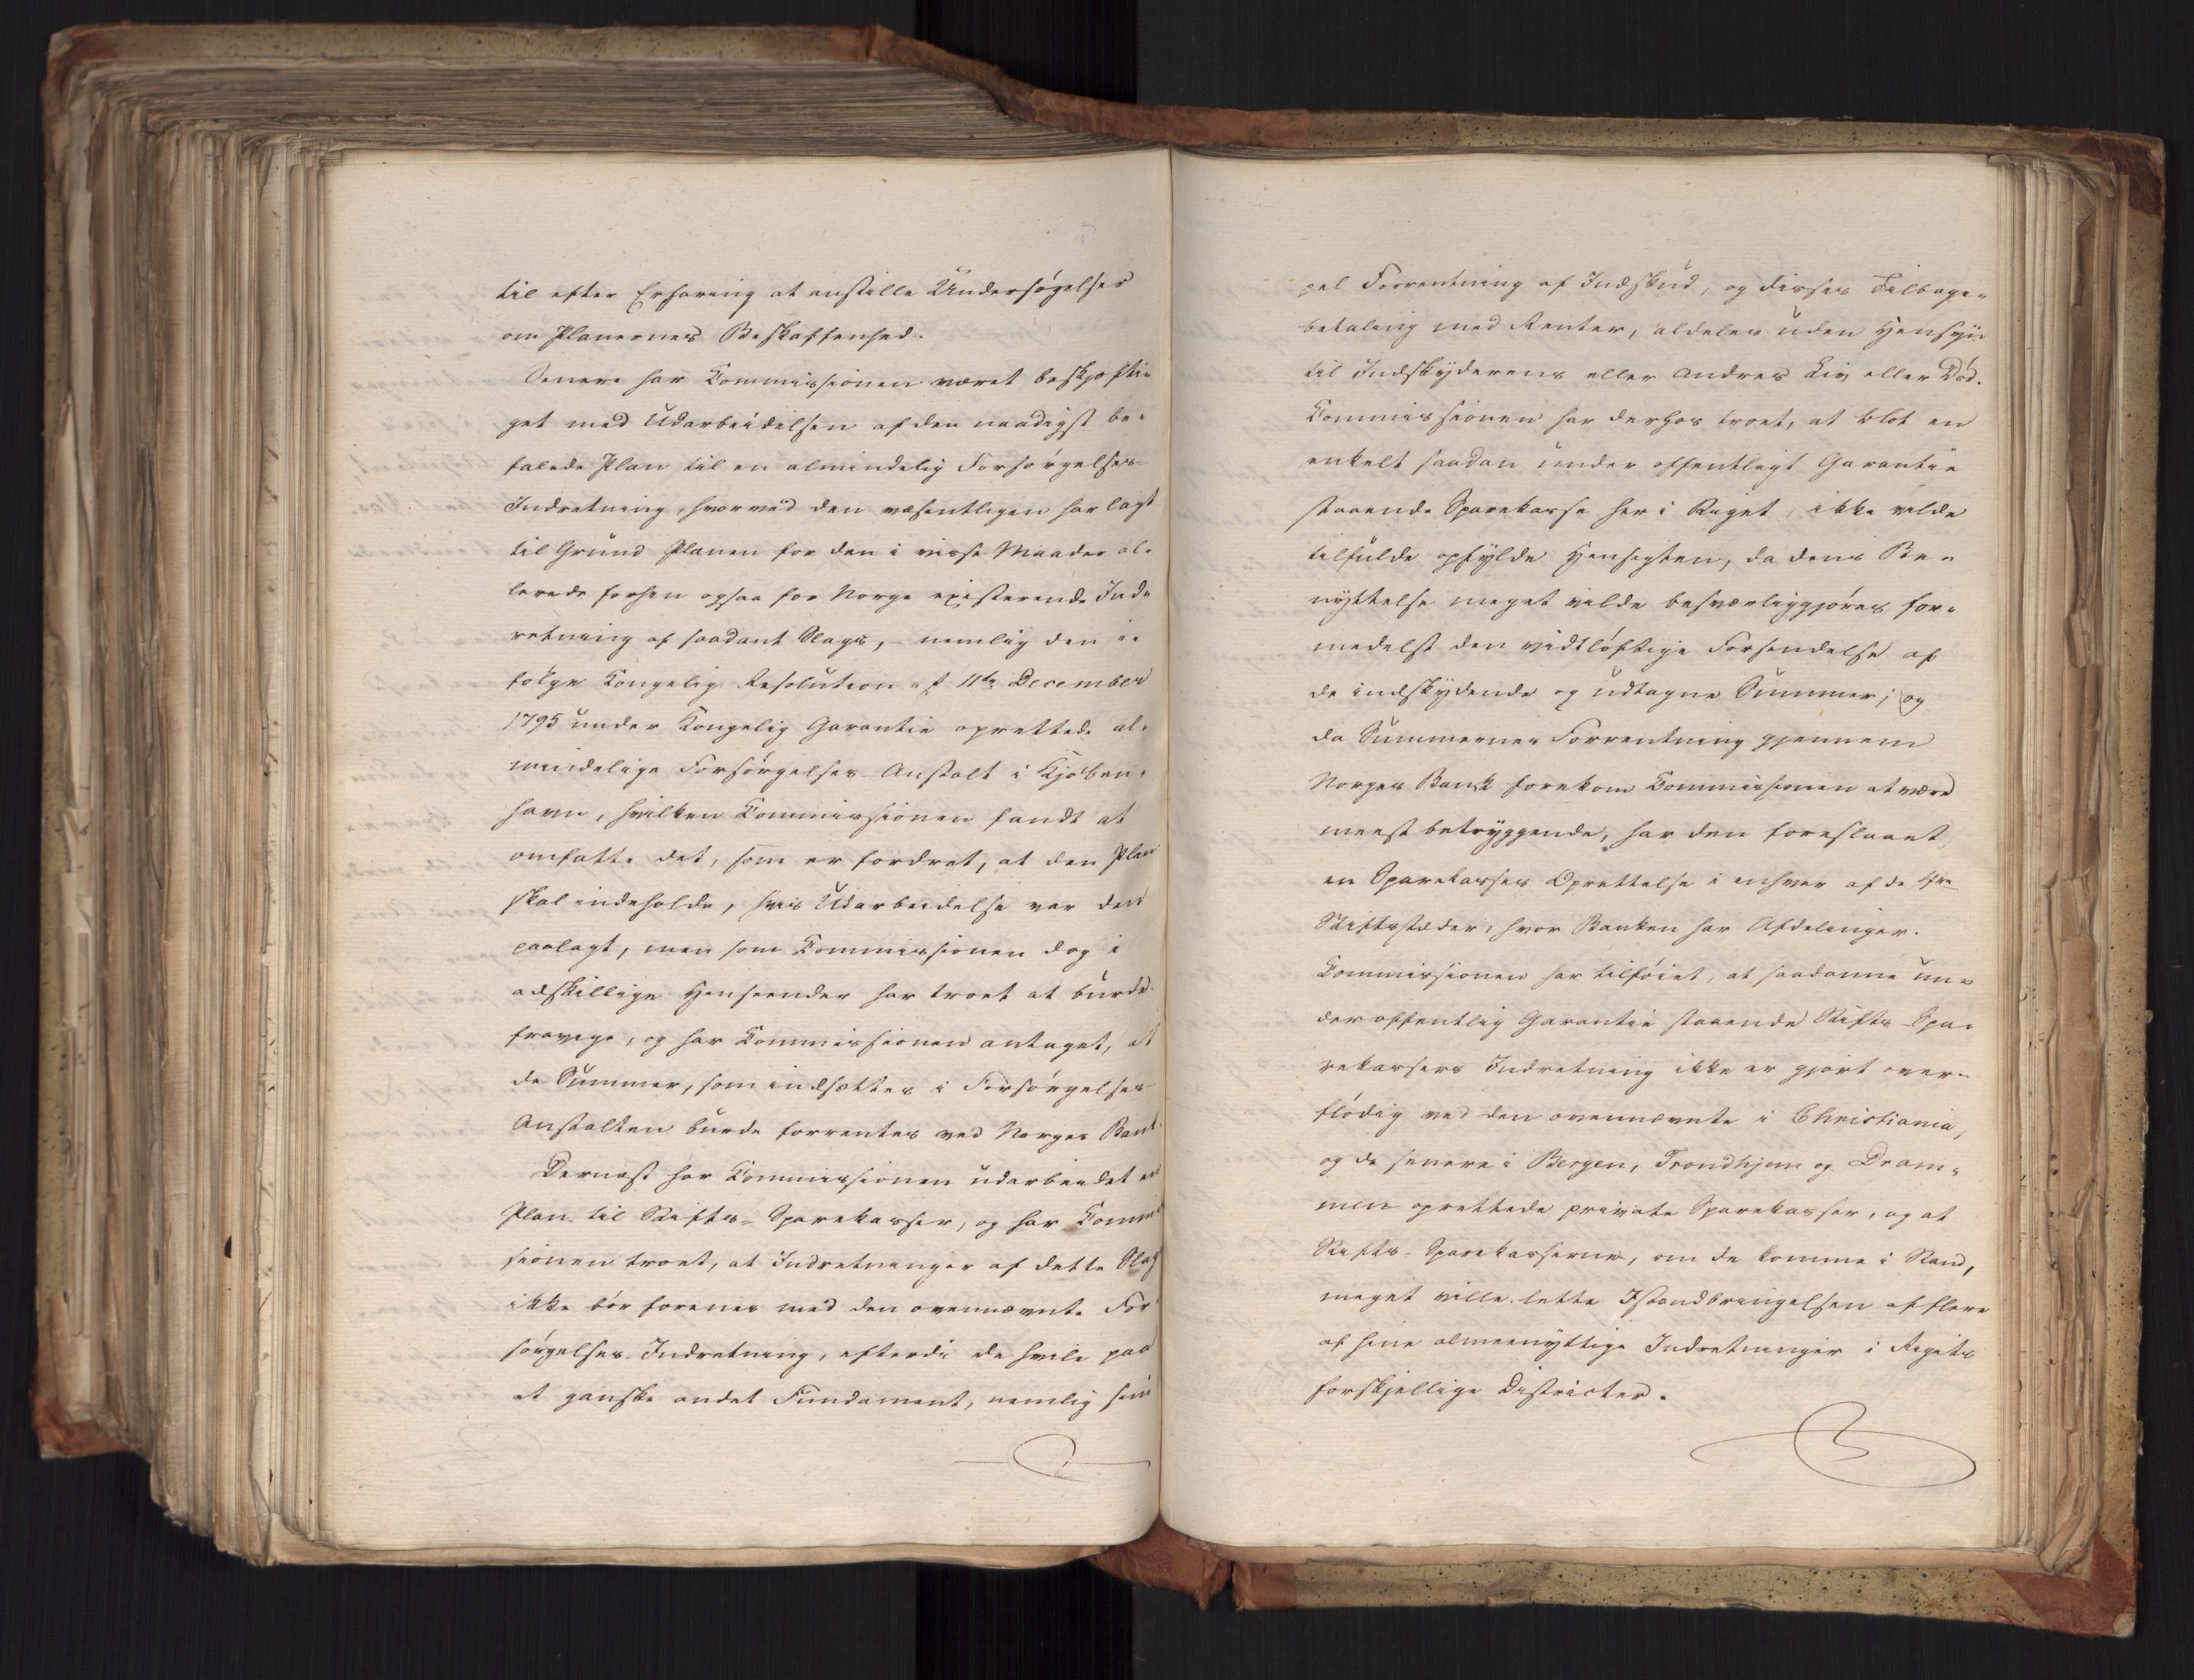 til efter Erfaring at anstille Undersøgelser
om Planernes Beskaffenhed.
Senere har Commissionen været beskjæfti-
get med Udarbeidelsen af den naadigst be-
falede Plan til en almindelig Forsørgelses-
Indretning, hvorved den væsentligen har lagt
til Grund Planen for den i visse Maader al-
lerede forhen ogsaa for Norge existerende Ind-
retning af saadant Slags, nemlig den i-
følge Kongelig Resolution af 11te December
1795 under Kongelig Garantie oprettede al-
mindelige Forsørgelses-Anstalt i Kjøben-
havn, hvilken Commissionen fandt at
omfatte det, som er fordret, at den Plan
skal indeholde, hvis Udarbeidelse var den
paalagt, men som Commissionen dog i
adskillige Henseender har troet at burde
fravige, og har Commissionen antaget, at
de Summer, som indsættes i Forsørgelses-
Anstalten burde forrentes ved Norges Bank.
Dernæst har Commissionen udarbeidet en
Plan til Stifts-Sparekasser, og har Commis
sionen troet, at Indretninger af dette Slags
ikke bør forenes med den ovennævnte For
sørgelses-Indretning, efterdi de hvile paa
et ganske andet Fundament, nemlig sim
pel Forrentning af Indskud, og disses Tilbage-
betaling med Renter, aldeles uden Hensyn
til Indskyderens eller Andres Liv eller Død.
Commissionen har derhos troet, at blot en
enkelt saadan under offentligt Garantie
staaende Sparekasse her i Riget, ikke vilde
tilfulde opfylde Hensigten, da dens Be-
nyttelse meget vilde besværliggjøres for-
medelst den vidtløftige Forsendelse af
de indskydende og udtagne Summer; og
da Summernes Forrentning gjennem
Norges Bank forekom Commissionen at være
meest betryggende, har den foreslaaet
en Sparekasses Oprettelse i enhver af de fire
Stiftsstæder, hvor Banken har Afdelinger.
Commissionen har tilføiet, at saadanne un-
der offentlig Garantie staaende Stifts-Spa-
rekassers Indretning ikke er gjort over-
flødig ved den ovennævnte i Christiania,
og de senere i Bergen, Trondhjem og Dram-
men oprettede private Sparekasser, og at
Stifts-Sparekasserne, om de komme i Stand,
meget ville lette Istandbringelsen af flere
af hine almeennyttige Indretninger i Rigets
forskjellige Districter.